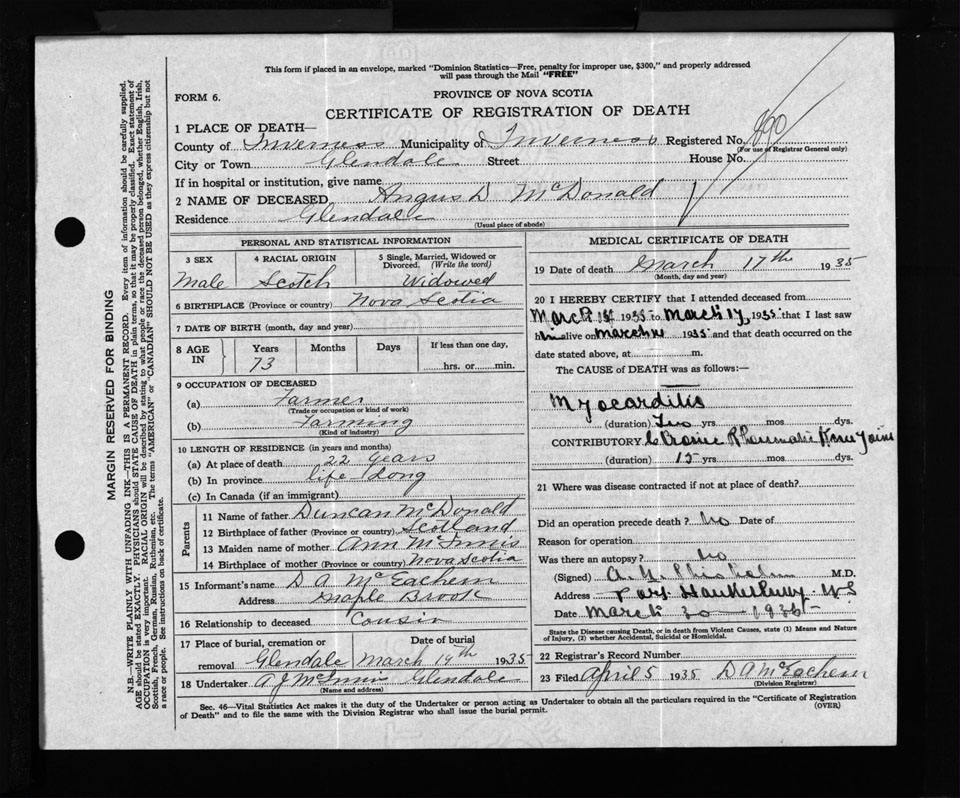 This form if placed in an envelope, marked "Dominion Statistics—Free, penalty for improper use, $300," and properly addressed
will pass through the Mail "FREE"
FORM 6.
PROVINCE OF NOVA SCOTIA
CERTIFICATE OF REGISTRATION OF DEATH
1 PLACE OF DEATH—
County of Inverness Municipality of Inverness Registered No. 890
(For use of Registrar General only)
City or Town Glendale Street House No.
If in hospital or institution, give name
2 NAME OF DECEASED Angus D McDonald
Residence Glendale
(Usual place of abode)
PERSONAL AND STATISTICAL INFORMATION
3 SEX 4 RACIAL ORIGIN 5 Single, Married, Widowed or Divorced. (Write the word)
Male Scotch Widowed
6 BIRTHPLACE (Province or country) Nova Scotia
7 DATE OF BIRTH (month, day and year)
8 AGE IN Years Months Days If less than one day,
73 hrs. or min.
9 OCCUPATION OF DECEASED
(a) Farmer
(Trade or occupation or kind of work)
(b) Farming
(Kind of industry)
10 LENGTH OF RESIDENCE (in years and months)
(a) At place of death 22 Years
(b) In province life Long
(c) In Canada (if an immigrant)
Parents
11 Name of father Duncan McDonald
12 Birthplace of father (Province or country) Scotland
13 Maiden name of mother Ann McInnis
14 Birthplace of mother (Province or country) Nova Scotia
15 Informant's name D A McEachern
Address Maple Brook
16 Relationship to deceased Cousin
17 Place of burial, cremation or removal Glendale Date of burial March 19th 1935
18 Undertaker A J McInnis Glendale
(Name and address)
MEDICAL CERTIFICATE OF DEATH
19 Date of death March 17th 1935
(Month, day and year)
20 I HEREBY CERTIFY that I attended deceased from
March 1st 1935 to March 17, 1935 that I last saw
him alive on March 1935 and that death occurred on the
date stated above, at m.
The CAUSE of DEATH was as follows:—
Myocarditis
(duration) Two yrs mos dys.
CONTRIBUTORY Chronic Rheumatic Knee Joints
(duration) 15 yrs mos dys.
21 Where was disease contracted if not at place of death?
Did an operation precede death? No Date of
Reason for operation
Was there an autopsy? No
(Signed) A. Chisholm M.D.
Address Port Hawkesbury N S
Date March 20 1935
State the Disease causing Death, or in death from Violent Causes, state (1) Means and Nature
of Injury, (2) whether Accidental, Suicidal or Homicidal.
22 Registrar's Record Number
23 Filed April 5 1935 D A McEachern
(Division Registrar)
Sec. 46—Vital Statistics Act makes it the duty of the Undertaker or person acting as Undertaker to obtain all the particulars required in the "Certificate of Registration
of Death" and to file the same with the Division Registrar who shall issue the burial permit. (OVER)
MARGIN RESERVED FOR BINDING
N.B.—WRITE PLAINLY WITH UNFADING INK—THIS IS A PERMANENT RECORD. Every item of information should be carefully supplied.
AGE should be stated EXACTLY. PHYSICIANS should STATE CAUSE OF DEATH in plain terms, so that it may be properly classified. Exact statement of
OCCUPATION is very important. RACIAL ORIGIN will be described by stating to what people or race the deceased person belonged, whether English, Irish,
Scottish, French, German, Russian, Ruthenian, etc. The terms "AMERICAN" or "CANADIAN" SHOULD NOT BE USED as they express citizenship but not
a race or people. See instructions on back of certificate.